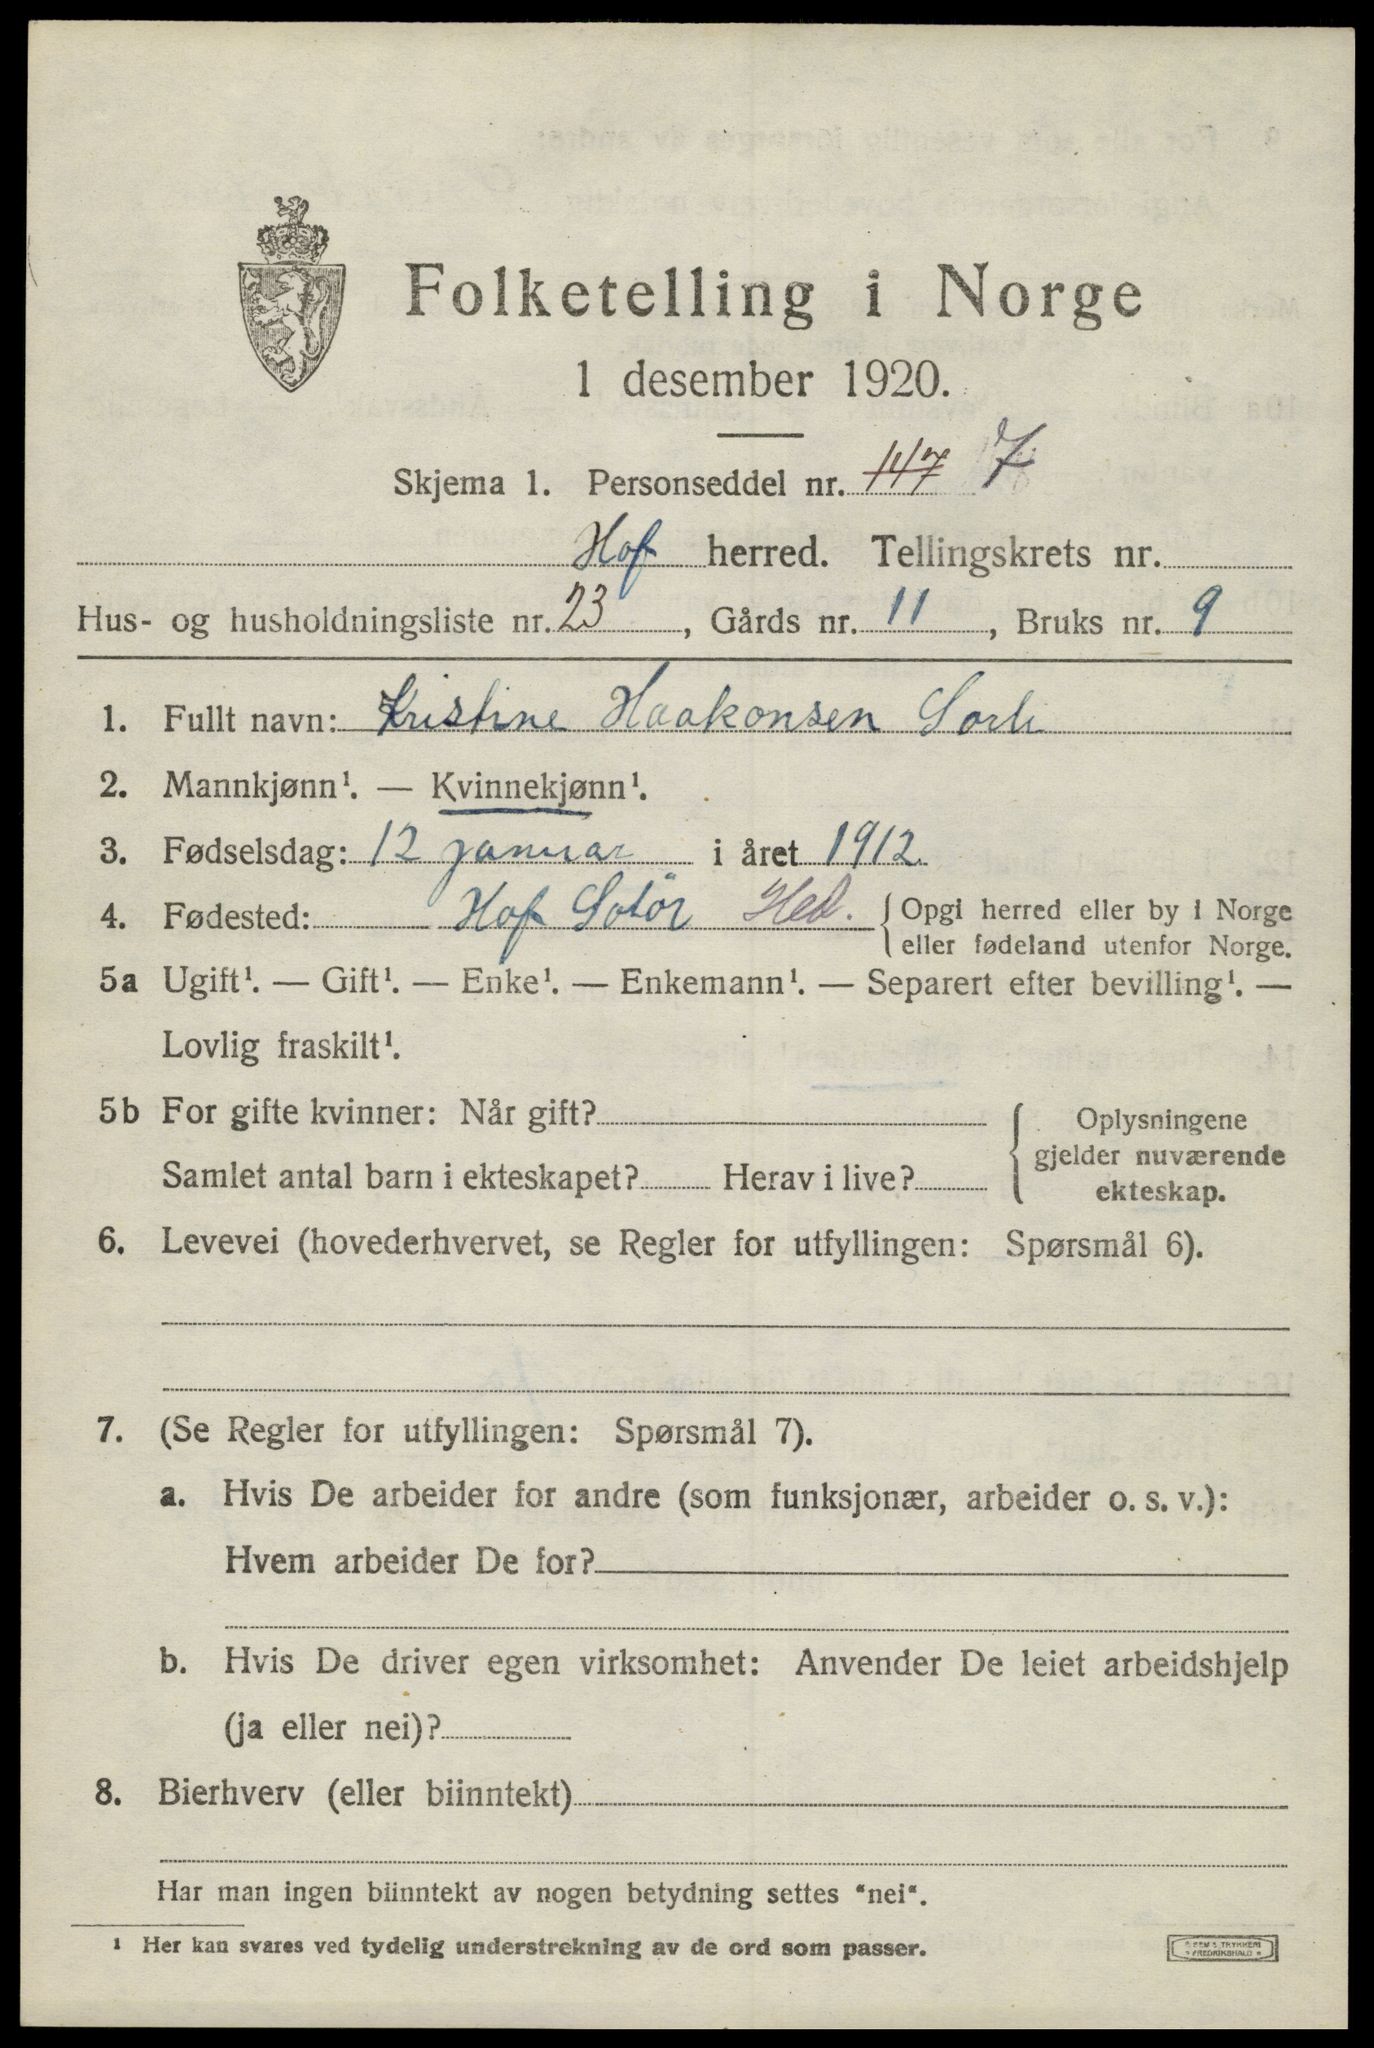 Folketelling i Norge
1 desember 1920.
Skjema 1. Personseddel nr. 117 7
Hof herred. Tellingskrets nr.
Hus- og husholdningsliste nr. 23, Gårds nr. 11, Bruks nr. 9
1. Fullt navn: Kristine Haakonsen Sorli
2. Mannkjønn¹. — Kvinnekjønn¹.
3. Fødselsdag: 12 januar i året 1912
4. Fødested: Hof Solör Hed. { Opgi herred eller by i Norge
eller fødeland utenfor Norge.
5a Ugift¹. — Gift¹. — Enke¹. — Enkemann¹. — Separert efter bevilling¹. —
Lovlig fraskilt¹.
5b For gifte kvinner: Når gift? { Oplysningene
gjelder nuværende
Samlet antal barn i ekteskapet? Herav i live?
ekteskap.
6. Levevei (hovederhvervet, se Regler for utfyllingen: Spørsmål 6).
7. (Se Regler for utfyllingen: Spørsmål 7).
a. Hvis De arbeider for andre (som funksjonær, arbeider o. s. v.):
Hvem arbeider De for?
b. Hvis De driver egen virksomhet: Anvender De leiet arbeidshjelp
(ja eller nei)?
8. Bierhverv (eller biinntekt)
Har man ingen biinntekt av nogen betydning settes "nei".
¹ Her kan svares ved tydelig understrekning av de ord som passer.
TRYKKERI
FREDRIKSHALD